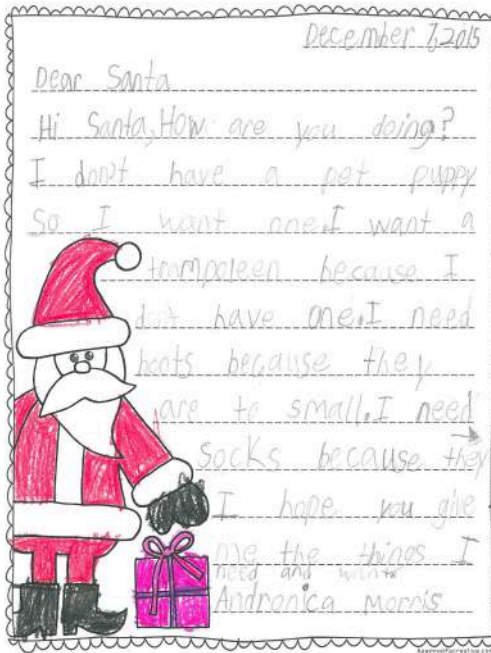 December 7, 2015
Dear Santa
Hi Santa, How are you doing?
I don't have a pet puppy
So I want one. I want a
trampoleen because I
don't have one. I need
boots because they
are to small. I need
socks because they
I hope you give
me the things I
need and want
Andronica Morris